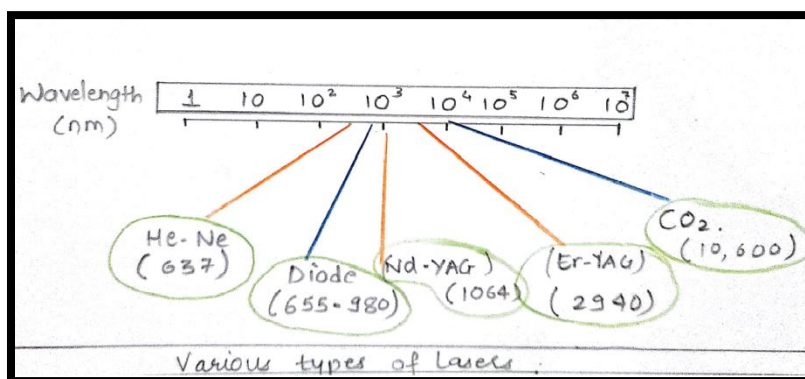 Wavelength
(nm)
1 10 10² 10³ 10⁴ 10⁵ 10⁶ 10⁷
He-Ne
(637)
Diode
(655-980)
(Nd-YAG)
(1064)
(Er-YAG)
(2940)
CO₂.
(10,600)
Various types of Lasers.